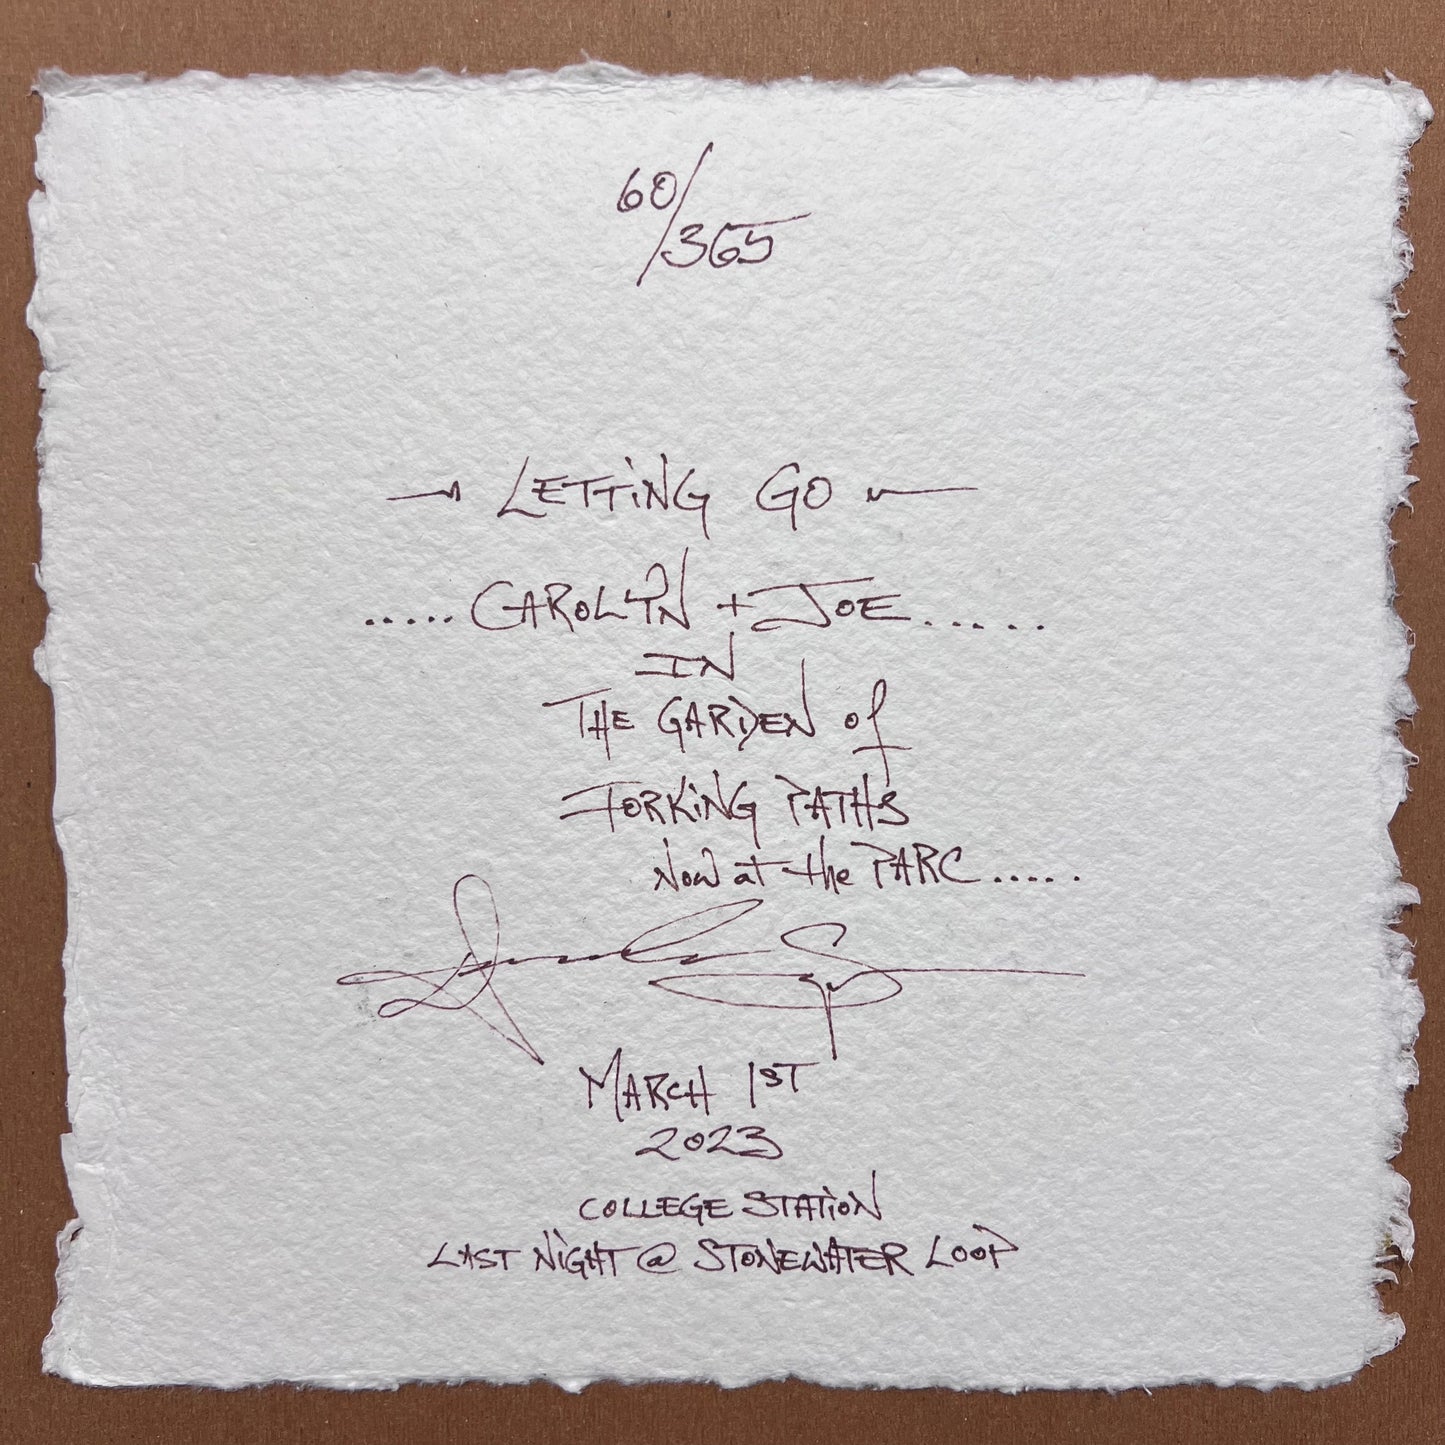 60/365
LETTING GO
.....CAROLYN + JOE.....
IN
THE GARDEN of
FORKING PATHS
NOW at the PARC.....
MARCH 1ST
2023
COLLEGE STATION
LAST NIGHT @ STONEWATER LOOP